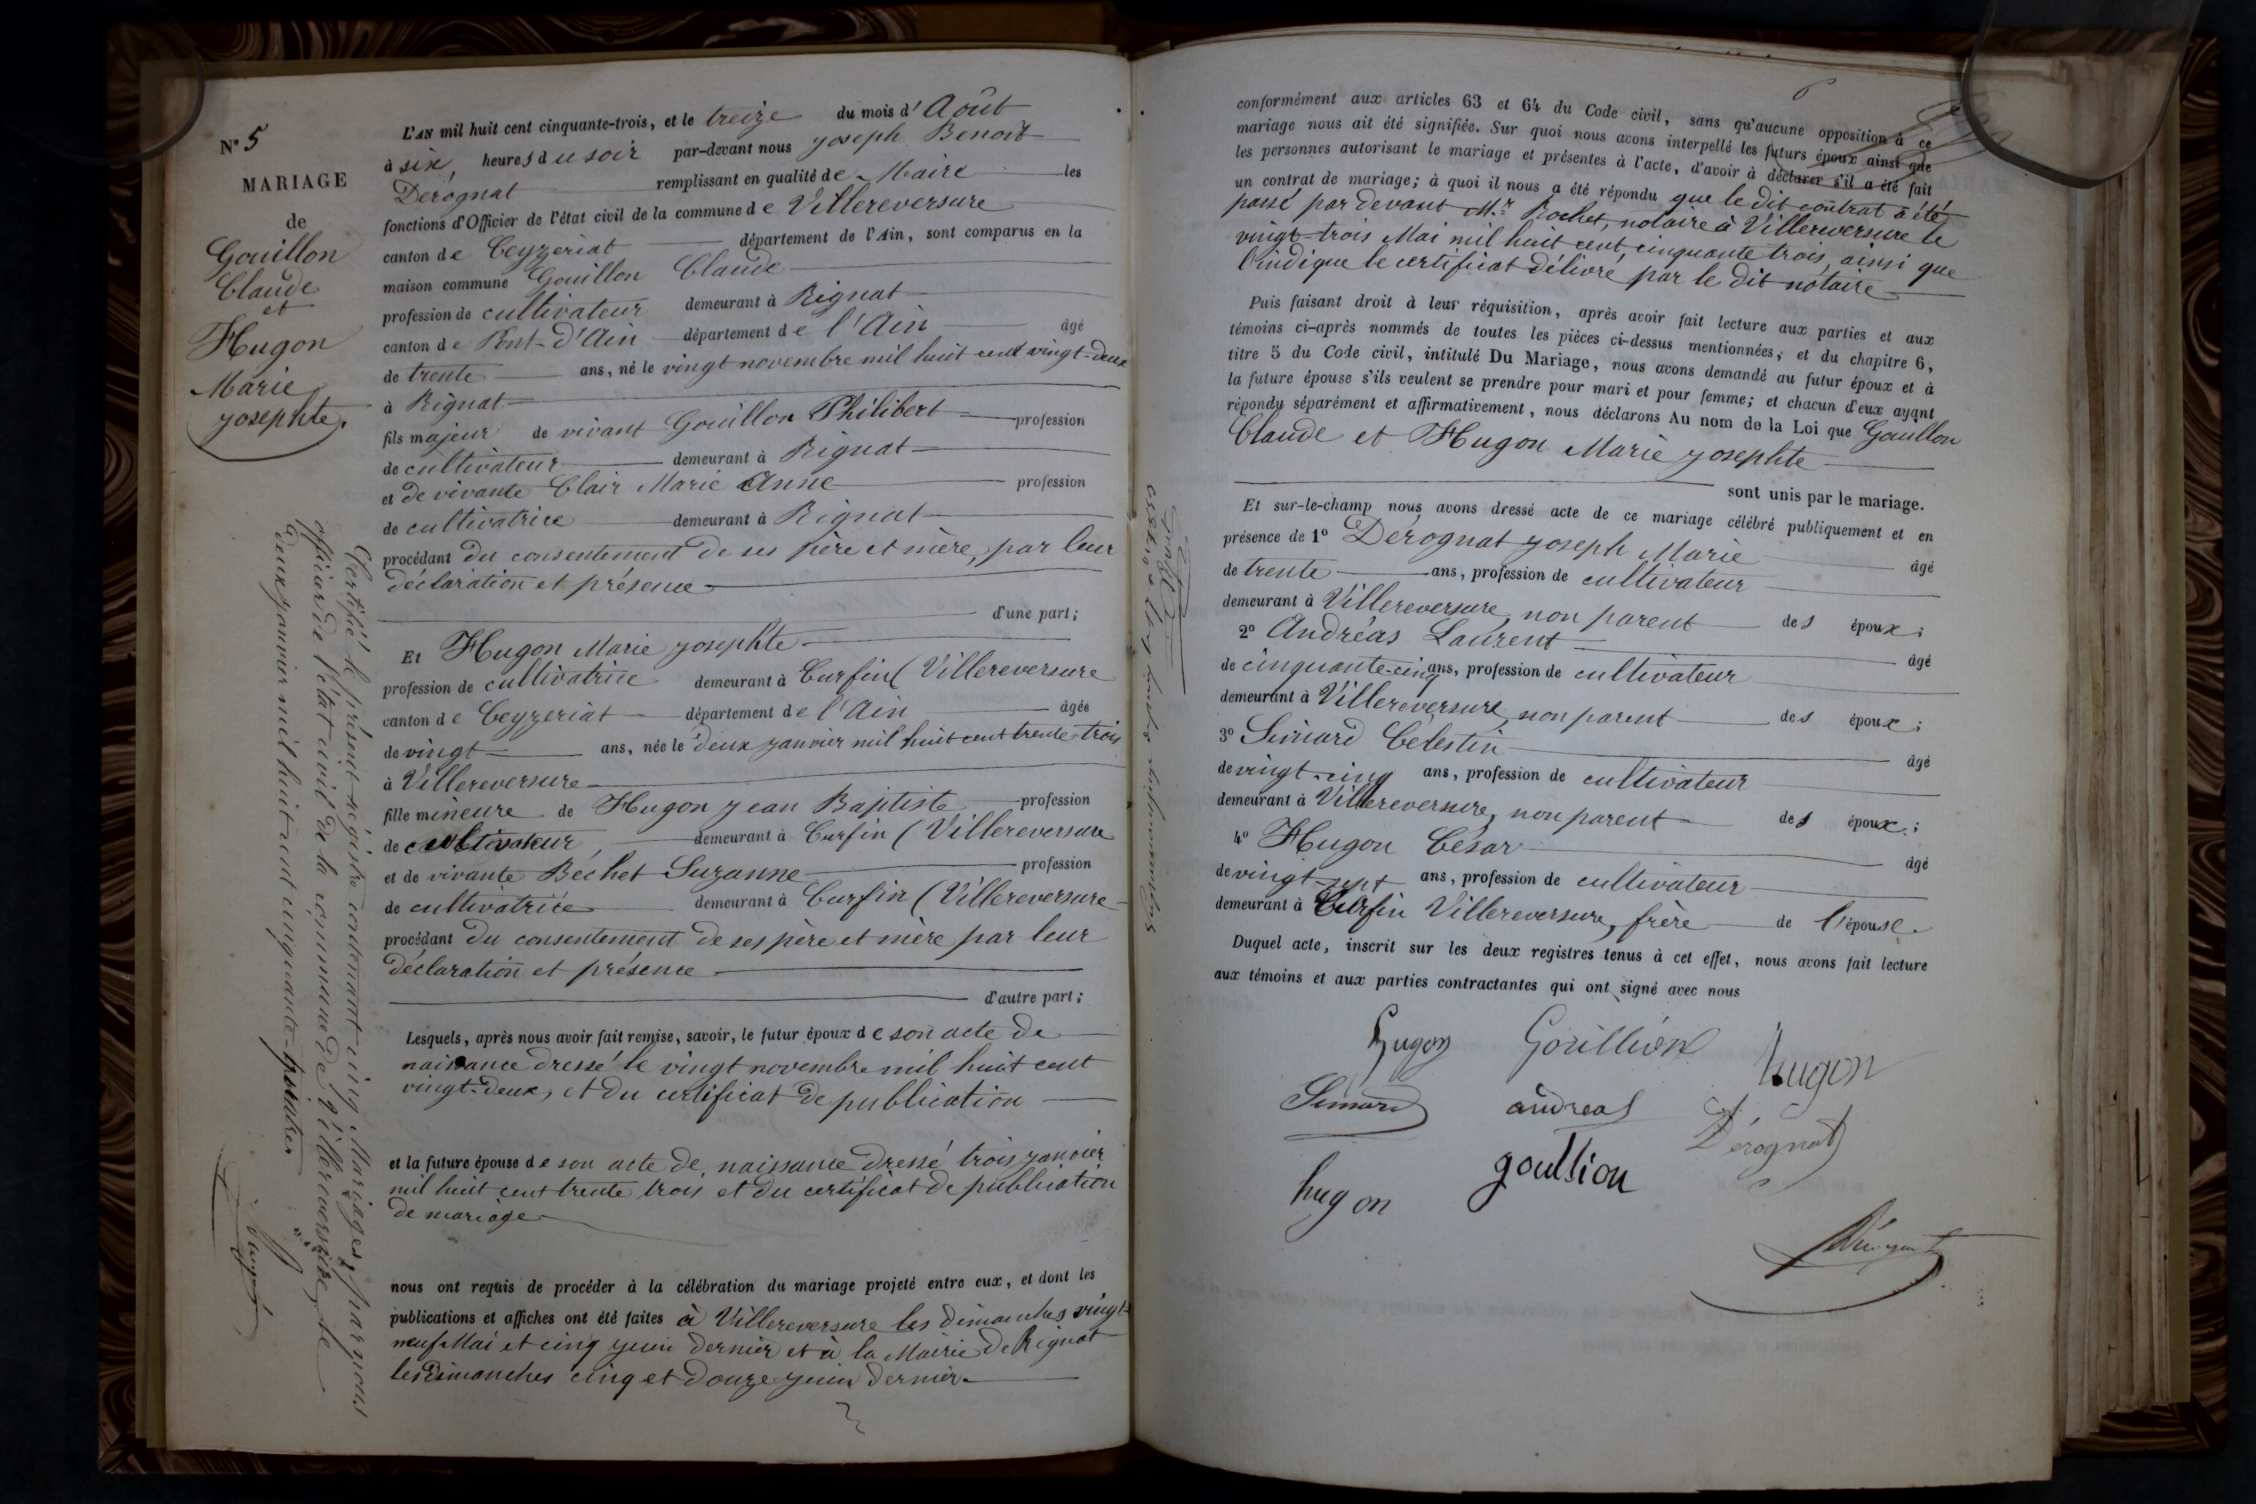 N° 5
MARIAGE
de
Gouillon
Claude
et
Hugon
Marie
Josephte.
L'AN mil huit cent cinquante-trois, et le treize du mois d'Août
à six heures du soir par-devant nous Joseph Benoit
Dérognat remplissant en qualité de Maire les
fonctions d'Officier de l'état civil de la commune de Villereversure
canton de Ceyzeriat département de l'Ain, sont comparus en la
maison commune Gouillon Claude
profession de cultivateur demeurant à Rignat
canton de Pont-d'Ain département de l'Ain âgé
de trente ans, né le vingt novembre mil huit cent vingt-deux
à Rignat
fils majeur de vivant Gouillon Philibert profession
de cultivateur demeurant à Rignat
et de vivante Clair Marie Anne profession
de cultivatrice demeurant à Rignat
procédant du consentement de ses père et mère, par leur
déclaration et présence
d'une part;
Et Hugon Marie Josephte
profession de cultivatrice demeurant à Curfin (Villereversure
canton de Ceyzeriat département de l'Ain âgée
de vingt ans, née le deux janvier mil huit cent trente-trois
à Villereversure
fille mineure de Hugon Jean Baptiste profession
de cultivateur demeurant à Curfin (Villereversure
et de vivante Béchet Suzanne profession
de cultivatrice demeurant à Curfin (Villereversure
procédant du consentement de ses père et mère par leur
déclaration et présence
d'autre part;
Lesquels, après nous avoir fait remise, savoir, le futur époux de son acte de
naissance dressé le vingt novembre mil huit cent
vingt-deux, et du certificat de publication
et la future épouse de son acte de naissance dressé trois janvier
mil huit cent trente trois et du certificat de publication
de mariage
nous ont requis de procéder à la célébration du mariage projeté entre eux, et dont les
publications et affiches ont été faites à Villereversure les dimanches vingt-
neuf Mai et cinq juin dernier et à la Mairie de Rignat
les Dimanches cinq et douze juin dernier.
Certifié le présent régistre contenant cinq Mariages, par nous
officier de l'état civil de la commune de Villereversure, le
deux janvier mil huit cent cinquante-quatre.
6
conformément aux articles 63 et 64 du Code civil, sans qu'aucune opposition à ce
mariage nous ait été signifiée. Sur quoi nous avons interpellé les futurs époux ainsi que
les personnes autorisant le mariage et présentes à l'acte, d'avoir à déclarer s'il a été fait
un contrat de mariage; à quoi il nous a été répondu que le dit contrat a été
passé par devant M.r Rochet, notaire à Villereversure le
vingt-trois Mai mil huit cent cinquante trois, ainsi que
l'indique le certificat délivré par le dit notaire
Puis faisant droit à leur réquisition, après avoir fait lecture aux parties et aux
témoins ci-après nommés de toutes les pièces ci-dessus mentionnées, et du chapitre 6,
titre 5 du Code civil, intitulé Du Mariage, nous avons demandé au futur époux et à
la future épouse s'ils veulent se prendre pour mari et pour femme; et chacun d'eux ayant
répondu séparément et affirmativement, nous déclarons Au nom de la Loi que Gouillon
Claude et Hugon Marie Josephte
sont unis par le mariage.
Et sur-le-champ nous avons dressé acte de ce mariage célébré publiquement et en
présence de 1° Dérognat Joseph Marie âgé
de trente ans, profession de cultivateur
demeurant à Villereversure, non parent des époux;
2° Andréas Laurent âgé
de cinquante-cinq ans, profession de cultivateur
demeurant à Villereversure, non parent des époux;
3° Simard Célestin âgé
de vingt-cinq ans, profession de cultivateur
demeurant à Villereversure, non parent des époux;
4° Hugon César âgé
de vingt-sept ans, profession de cultivateur
demeurant à Curfin Villereversure, frère de l'épouse.
Duquel acte, inscrit sur les deux registres tenus à cet effet, nous avons fait lecture
aux témoins et aux parties contractantes qui ont signé avec nous
Hugon Gouillion hugon
Simard andreas Dérognat
hugon goullion
Dérognat